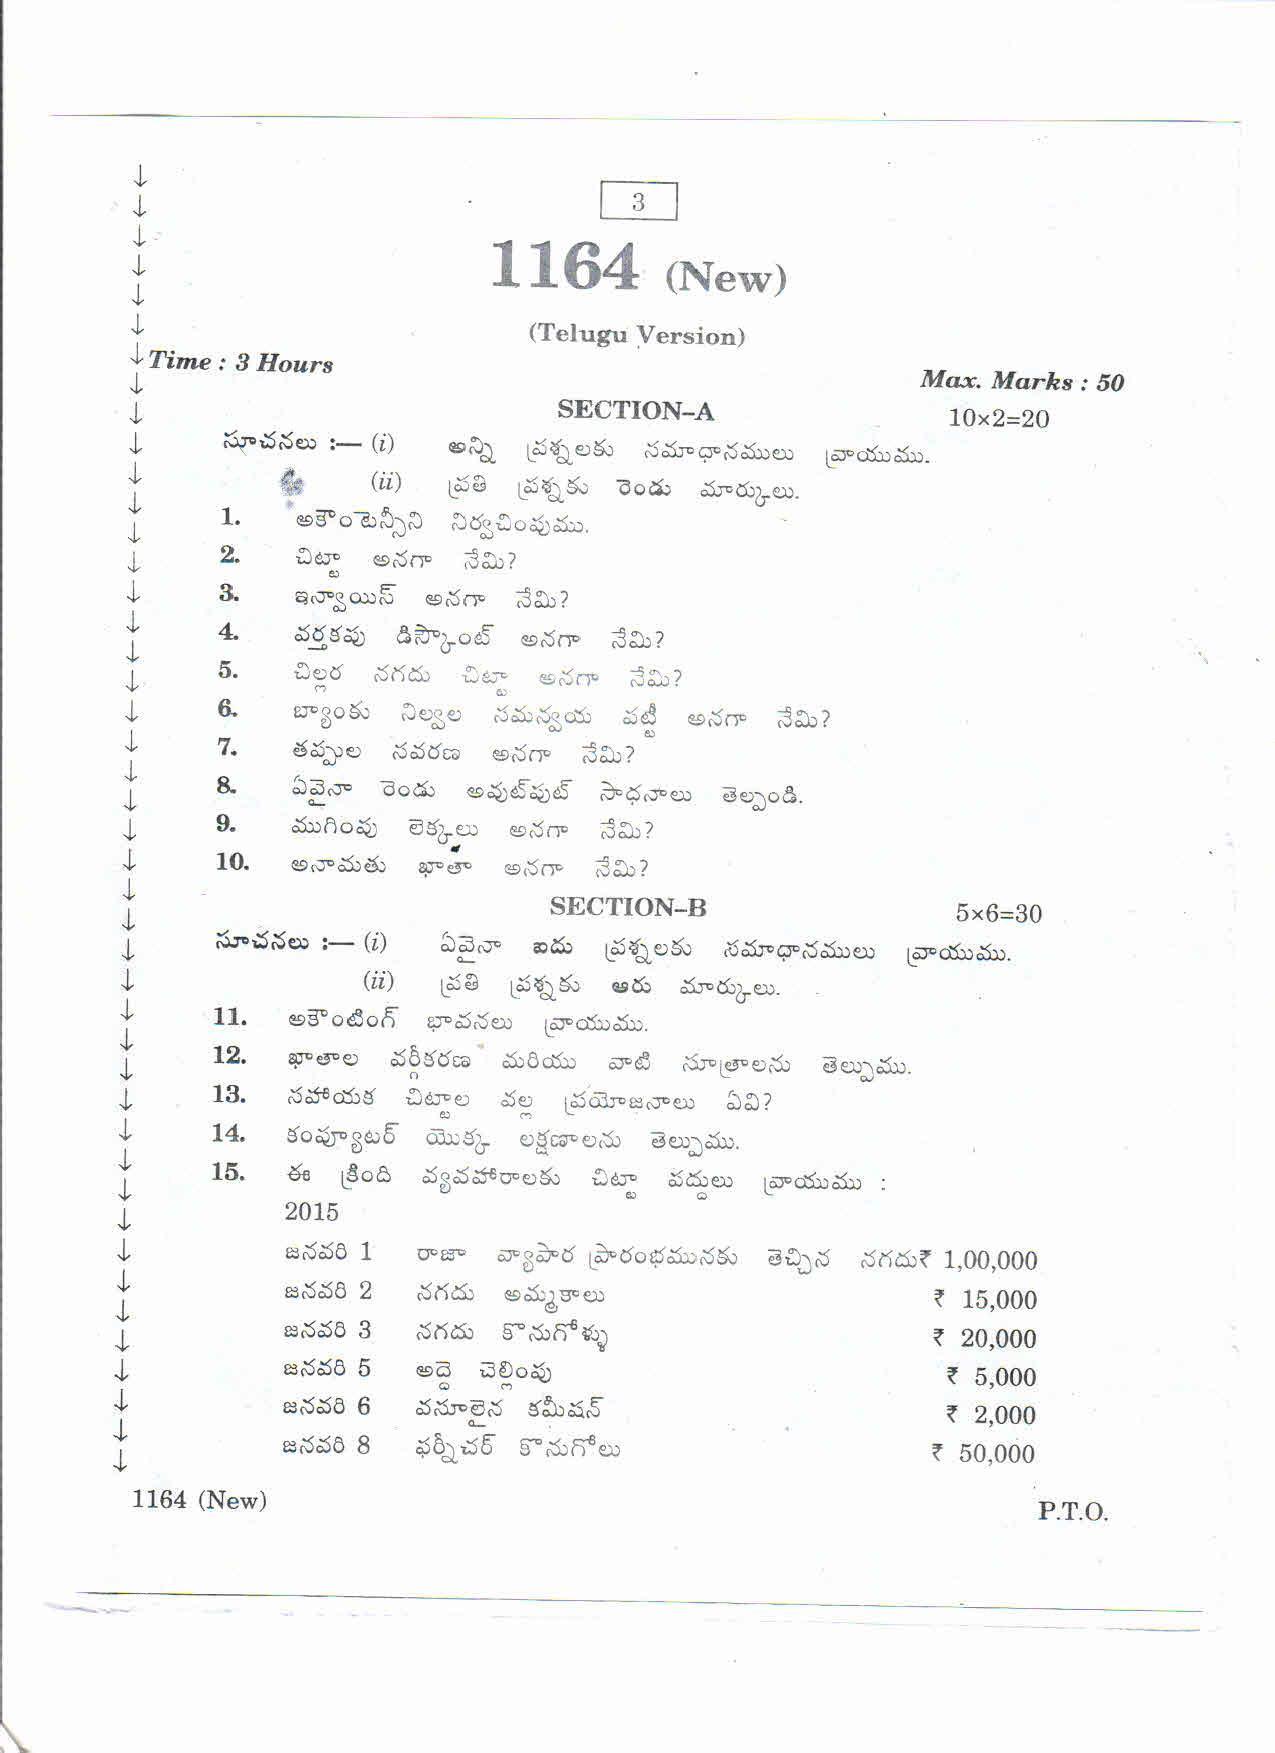 3
1164 (New)
(Telugu Version)
Time : 3 Hours
Max. Marks : 50
SECTION–A 10×2=20
సూచనలు :— (i) అన్ని ప్రశ్నలకు సమాధానములు వ్రాయుము.
(ii) ప్రతి ప్రశ్నకు రెండు మార్కులు.
1. అకౌంటెన్సీని నిర్వచింపుము.
2. చిట్టా అనగా నేమి?
3. ఇన్వాయిస్ అనగా నేమి?
4. వర్తకపు డిస్కౌంట్ అనగా నేమి?
5. చిల్లర నగదు చిట్టా అనగా నేమి?
6. బ్యాంకు నిల్వల సమన్వయ పట్టీ అనగా నేమి?
7. తప్పుల సవరణ అనగా నేమి?
8. ఏవైనా రెండు అవుట్‌పుట్ సాధనాలు తెల్పండి.
9. ముగింపు లెక్కలు అనగా నేమి?
10. అనామతు ఖాతా అనగా నేమి?
SECTION–B 5×6=30
సూచనలు :— (i) ఏవైనా ఐదు ప్రశ్నలకు సమాధానములు వ్రాయుము.
(ii) ప్రతి ప్రశ్నకు ఆరు మార్కులు.
11. అకౌంటింగ్ భావనలు వ్రాయుము.
12. ఖాతాల వర్గీకరణ మరియు వాటి సూత్రాలను తెల్పుము.
13. సహాయక చిట్టాల వల్ల ప్రయోజనాలు ఏవి?
14. కంప్యూటర్ యొక్క లక్షణాలను తెల్పుము.
15. ఈ క్రింది వ్యవహారాలకు చిట్టా పద్దులు వ్రాయుము :
2015
జనవరి 1 రాజా వ్యాపార ప్రారంభమునకు తెచ్చిన నగదు ₹ 1,00,000
జనవరి 2 నగదు అమ్మకాలు ₹ 15,000
జనవరి 3 నగదు కొనుగోళ్ళు ₹ 20,000
జనవరి 5 అద్దె చెల్లింపు ₹ 5,000
జనవరి 6 వసూలైన కమీషన్ ₹ 2,000
జనవరి 8 ఫర్నీచర్ కొనుగోలు ₹ 50,000
1164 (New)
P.T.O.